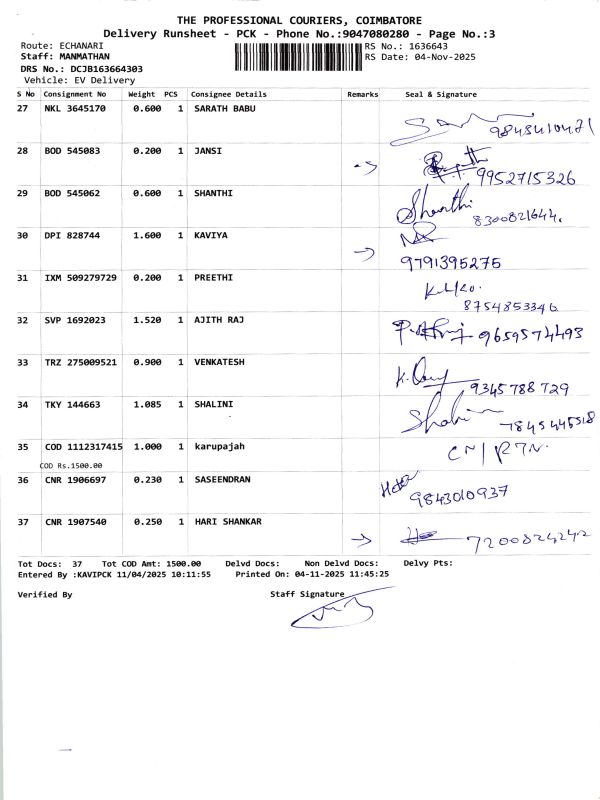 THE PROFESSIONAL COURIERS, COIMBATORE
Delivery Runsheet - PCK - Phone No.:9047080280 - Page No.:3
Route: ECHANARI RS No.: 1636643
Staff: MANMATHAN RS Date: 04-Nov-2025
DRS No.: DCJB163664303
Vehicle: EV Delivery
S No Consignment No Weight PCS Consignee Details Remarks Seal & Signature
27 NKL 3645170 0.600 1 SARATH BABU
28 BOD 545083 0.200 1 JANSI
9952715326
29 BOD 545062 0.600 1 SHANTHI Shanthi
8300821644.
30 DPI 828744 1.600 1 KAVIYA
9791395275
31 IXM 509279729 0.200 1 PREETHI
8754853346
32 SVP 1692023 1.520 1 AJITH RAJ 9659574493
33 TRZ 275009521 0.900 1 VENKATESH
9345788729
34 TKY 144663 1.085 1 SHALINI Shalini
7845445518
35 COD 1112317415 1.000 1 karupajah CN/RTN.
COD Rs.1500.00
36 CNR 1906697 0.230 1 SASEENDRAN
9843010937
37 CNR 1907540 0.250 1 HARI SHANKAR
7200824242
Tot Docs: 37 Tot COD Amt: 1500.00 Delvd Docs: Non Delvd Docs: Delvy Pts:
Entered By :KAVIPCK 11/04/2025 10:11:55 Printed On: 04-11-2025 11:45:25
Verified By Staff Signature